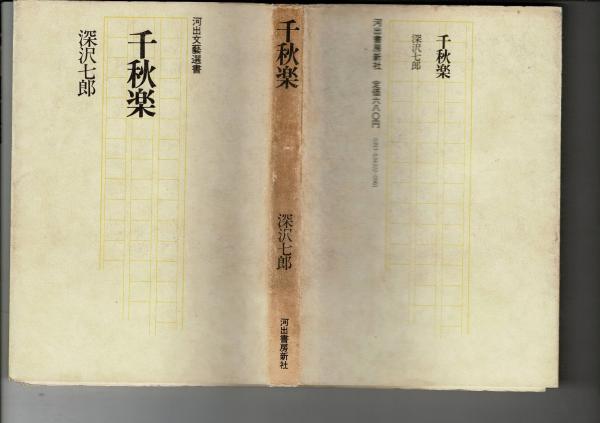 河出文藝選書
千秋楽
深沢七郎
千秋楽
深沢七郎
河出書房新社
千秋楽
深沢七郎
河出書房新社 定価六八〇円